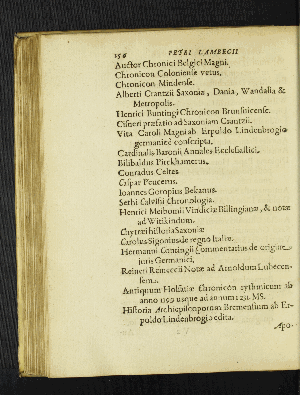 156 PETRI LAMBECII
Auctor Chronici Belgici Magni.
Chronicon Coloniense vetus.
Chronicon Mindense.
Alberti Crantzii Saxonia, Dania, Wandalia &
Metropolis.
Henrici Buntingi Chronicon Brunsuicense.
Cisneri præfatio ad Saxoniam Crantzii.
Vita Caroli Magni ab Erpoldo Lindenbrogio
germanicè conscripta.
Cardinalis Baronii Annales Ecclesiastici.
Bilibaldus Pirckhamerus.
Conradus Celtes.
Caspar Peucerus.
Joannes Goropius Becanus.
Sethi Calvisii Chronologia.
Henrici Meibomii Vindiciæ Billinganæ, & notæ
ad Witikindum.
Chytræi historia Saxoniæ
Carolus Sigonius de regno Italiæ.
Hermanni Conringii Commentarius de origine
juris Germanici.
Reineri Reineccii Notæ ad Arnoldum Lubecen-
sem.
Antiquum Holsatiæ Chronicon rythmicum ab
anno 1199 usque ad annum 1231 MS.
Historia Archiepiscoporum Bremensium ab Er-
poldo Lindenbrogio edita.
Apo-